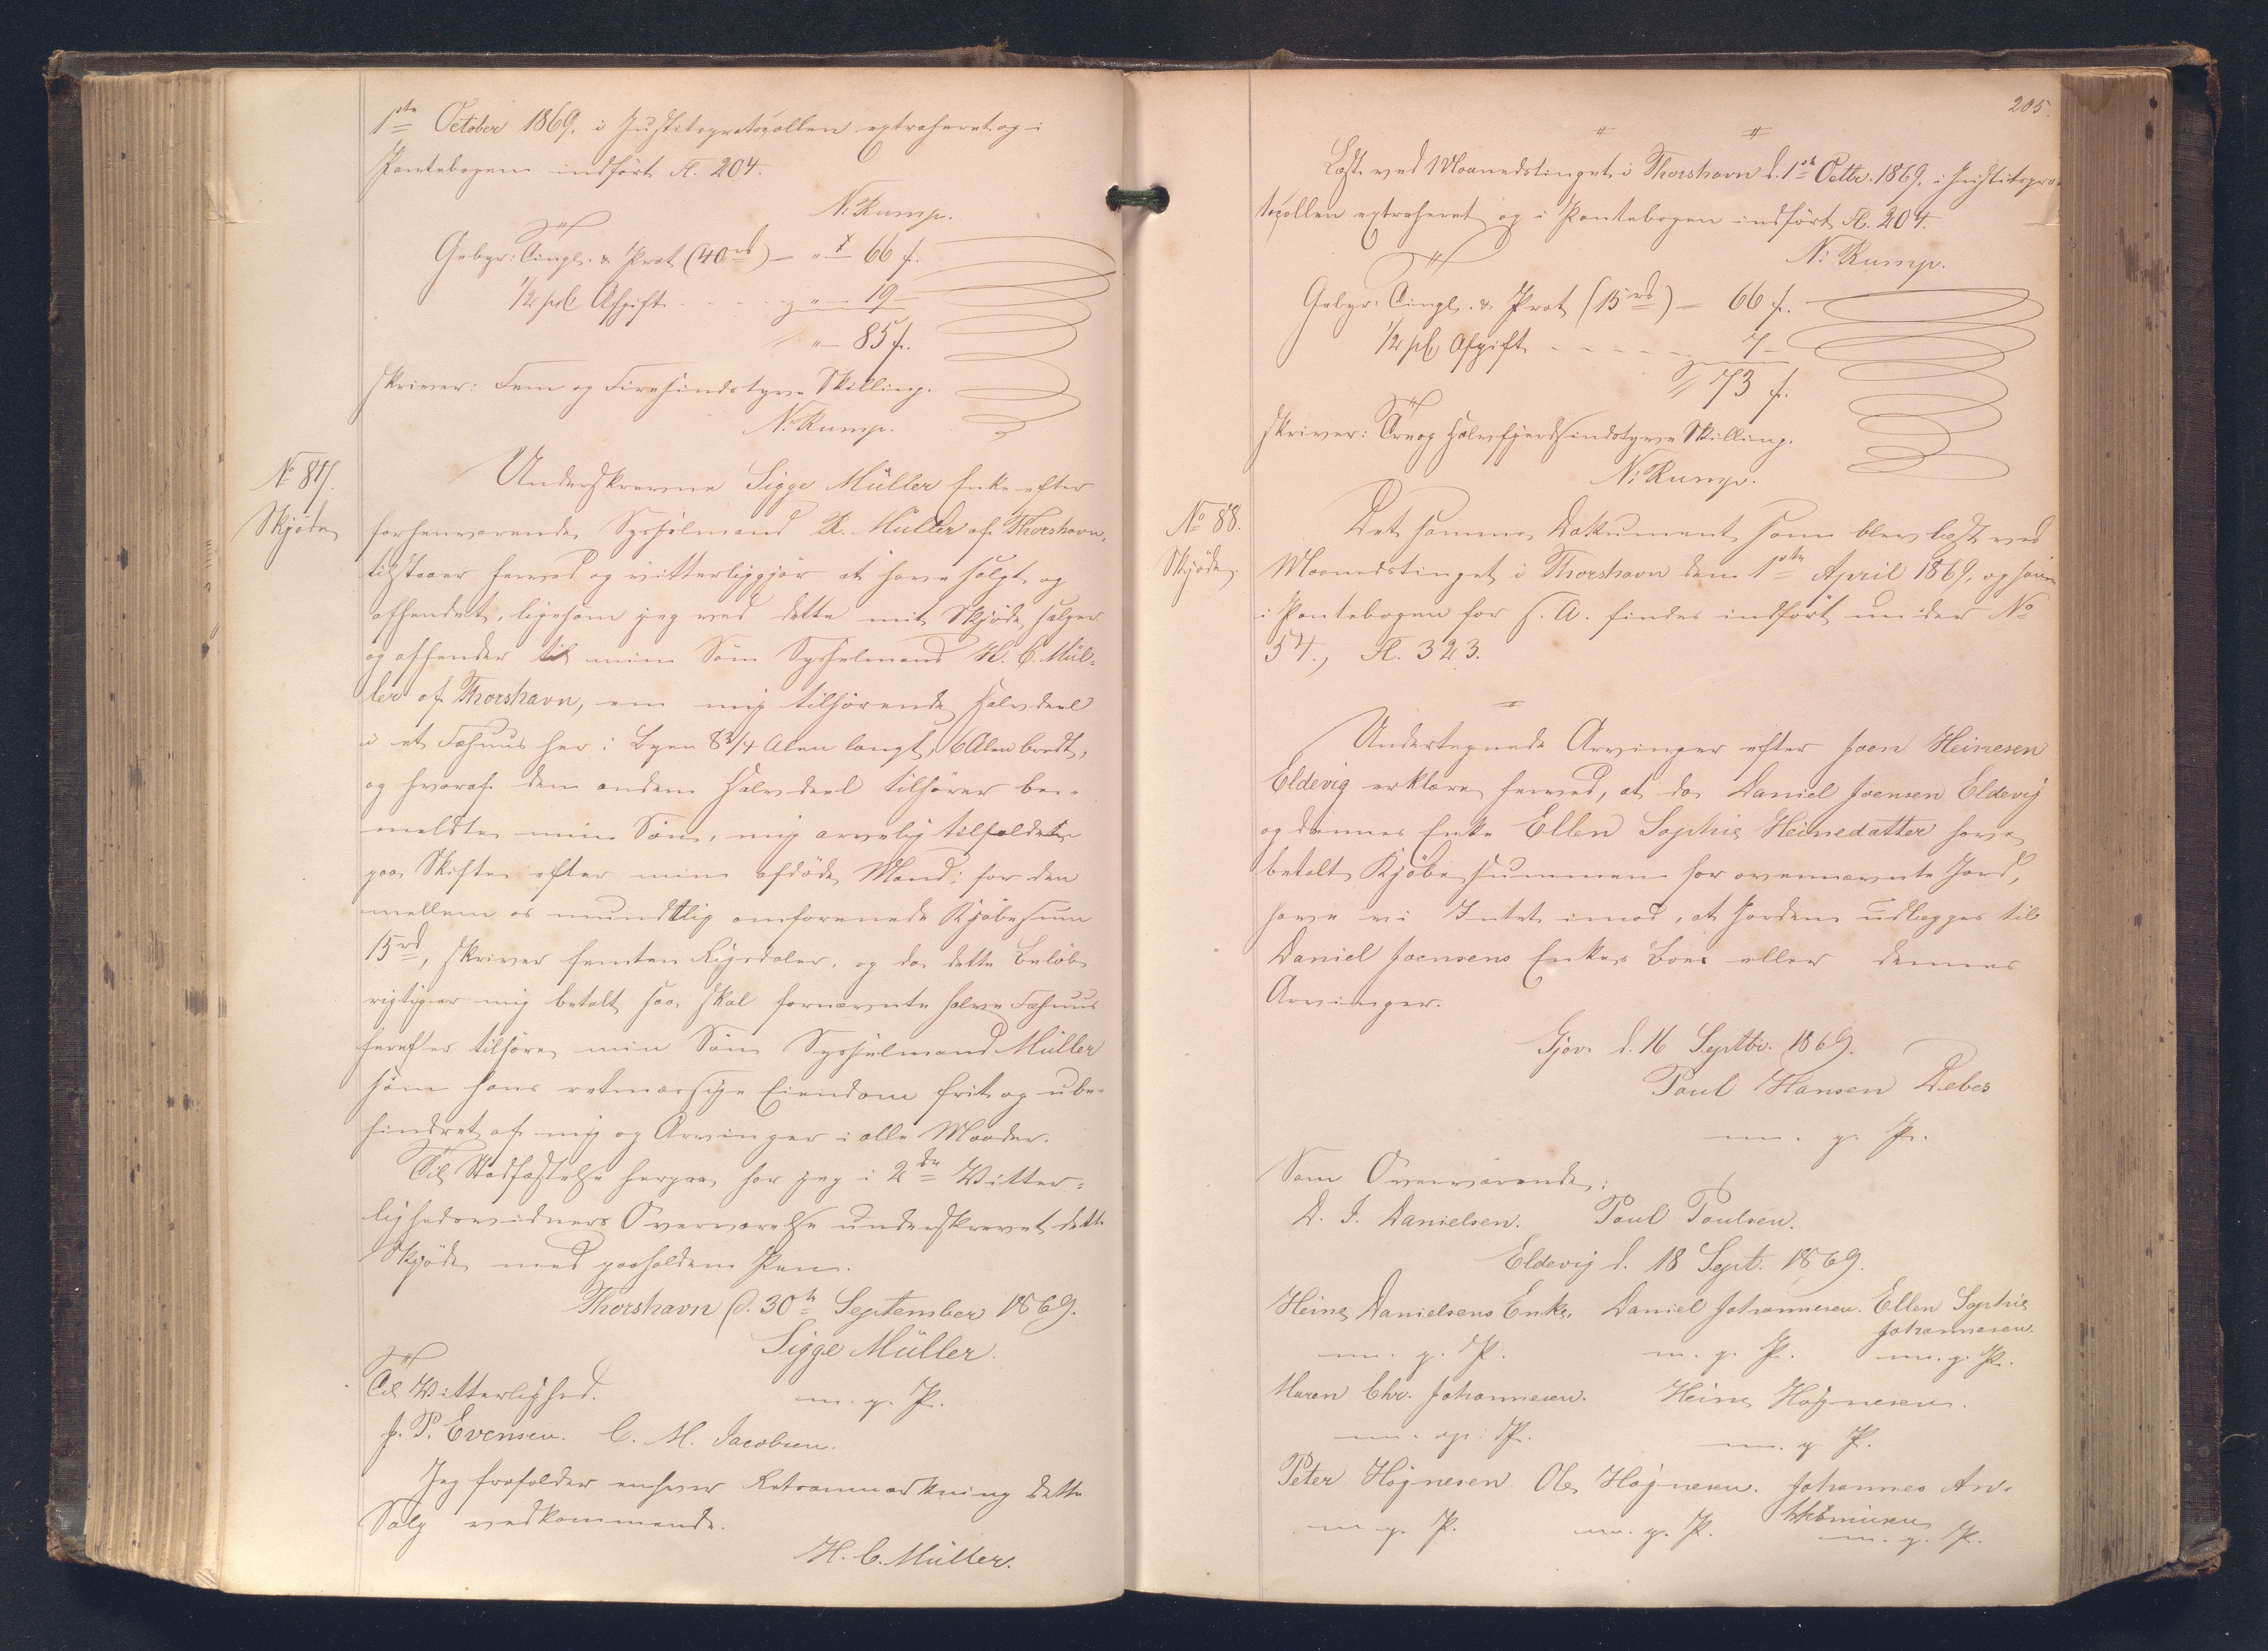 1ste October 1869, i Justitsprotocollen extraheret og i
Pantebogen indført Fl. 204.
N. Rump.
Gebyr: Tingl. & Prot (40 rd) — " ¥ 66 s.
1/2 pCt Afgift . . . . " — 19 —
" — 85 s.
skriver: Fem og Firesindstyve Skilling.
N. Rump.
No 87.
Skjøde
Underskrevne Sigge Müller Enke efter
forhenværende Sysselmand R. Müller af Thorshavn,
tilstaaer herved og vitterliggjør at have solgt og
afhendet, ligesom jeg ved dette mit Skjøde sælger
og afhender til min Søn Sysselmand H. C. Mül-
ler af Thorshavn, en mig tilhørende Halvdeel
i et Fæhuus her i Byen 8 3/4 Alen langt, 6 Alen bredt,
og hvoraf den anden Halvdeel tilhører be-
meldte min Søn, mig arvelig tilfalden
paa Skifte efter min afdøde Mand; for den
mellem os mundtlig omforenede Kjøbesum
15 rd, skriver femten Rigsdaler, og da dette Beløb
rigtig er mig betalt saa skal fornævnte halve Fæhuus
herefter tilhøre min Søn Sysselmand Müller
som hans retmæssige Eiendom frit og ube-
hindret af mig og Arvinger i alle Maader.
Til Stadfæstelse herpaa har jeg i 2de Vitter-
lighedsvidners Overværelse underskrevet dette
Skjøde med paaholden Pen.
Thorshavn d. 30te September 1869.
Sigge Müller.
m. p. P.
Til Vitterlighed.
J. P. Evensen. C. M. Jacobsen.
Jeg frafalder enhver Retsanmærkning dette
Salg vedkommende.
H. C. Müller.
205.
Læst ved Maanedstinget i Thorshavn d. 1ste Octbr. 1869, i Justitspro-
tocollen extraheret og i Pantebogen indført Fl. 204.
N. Rump.
Gebyr: Tingl. & Prot (15 rd) — 66 s.
1/2 pCt Afgift - - - - 7 —
73 s.
skriver: Tre og Halvfjerdsindstyve Skilling.
N. Rump.
No 88.
Skjøde.
Det samme Dokument som blev læst ved
Maanedstinget i Thorshavn den 1ste April 1869, og som
i Pantebogen for s. A. findes indført under No
54., Fl. 323.
Undertegnede Arvinger efter Joen Heinesen
Eldevig erklære herved, at da Daniel Joensen Eldevig
og dennes Enke Ellen Sophie Heinedatter have
betalt Kjøbesummen for ovennævnte Jord,
have vi Intet imod, at Jorden udlægges til
Daniel Joensens Enkes Boe eller dennes
Arvinger.
Gjov d. 16 Septbr. 1869.
Poul Hansen Debes
m. p. P.
Som Overværende:
D. J. Danielsen. Poul Poulsen.
Eldevig d. 18 Sept. 1869.
Heine Danielsens Enke, Daniel Johannesen. Ellen Sophie
Johannesen.
m. p. P. m. p. P. m. p. P.
Maren Chr. Johannesen. Heine Højnesen.
m. p. P. m. p. P.
Peter Højnesen Ole Højnesen. Johannes An-
m. p. P. m. p. P. m. p. P.